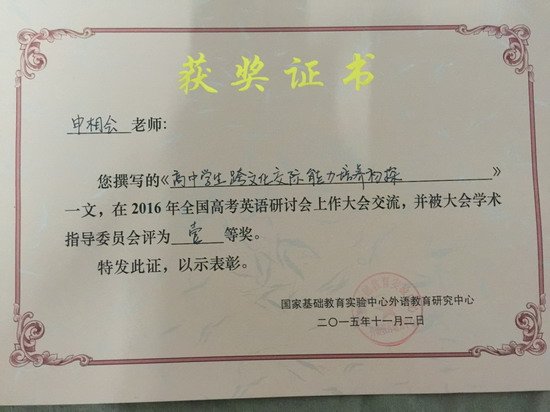 获奖证书
申相会 老师:
您撰写的《高中学生跨文化交际能力培养初探》
一文，在2016年全国高考英语研讨会上作大会交流，并被大会学术
指导委员会评为 壹 等奖。
特发此证，以示表彰。
国家基础教育实验中心外语教育研究中心
二〇一五年十一月二日